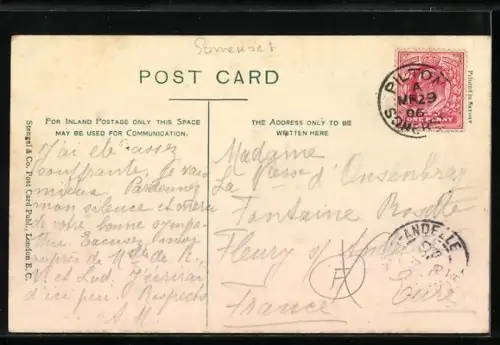 Somerset
POST CARD
FOR INLAND POSTAGE ONLY THIS SPACE
MAY BE USED FOR COMMUNICATION.
THE ADDRESS ONLY TO BE
WRITTEN HERE
J'ai été assez
souffrante, je vais
mieux. Pardonnez
mon silence et merci
de votre bonne sympa-
thie. Excusez
auprès de M de R,
V. et Lud. J'écrirai
d'ici peu. Respects
A. M.
Madame
La
Fontaine
Fleury s/
Eure
France
F
PILTON
A
MR 29
06
ONE PENNY
Printed in Saxony
Stengel & Co., Post Card Publ., London E. C.